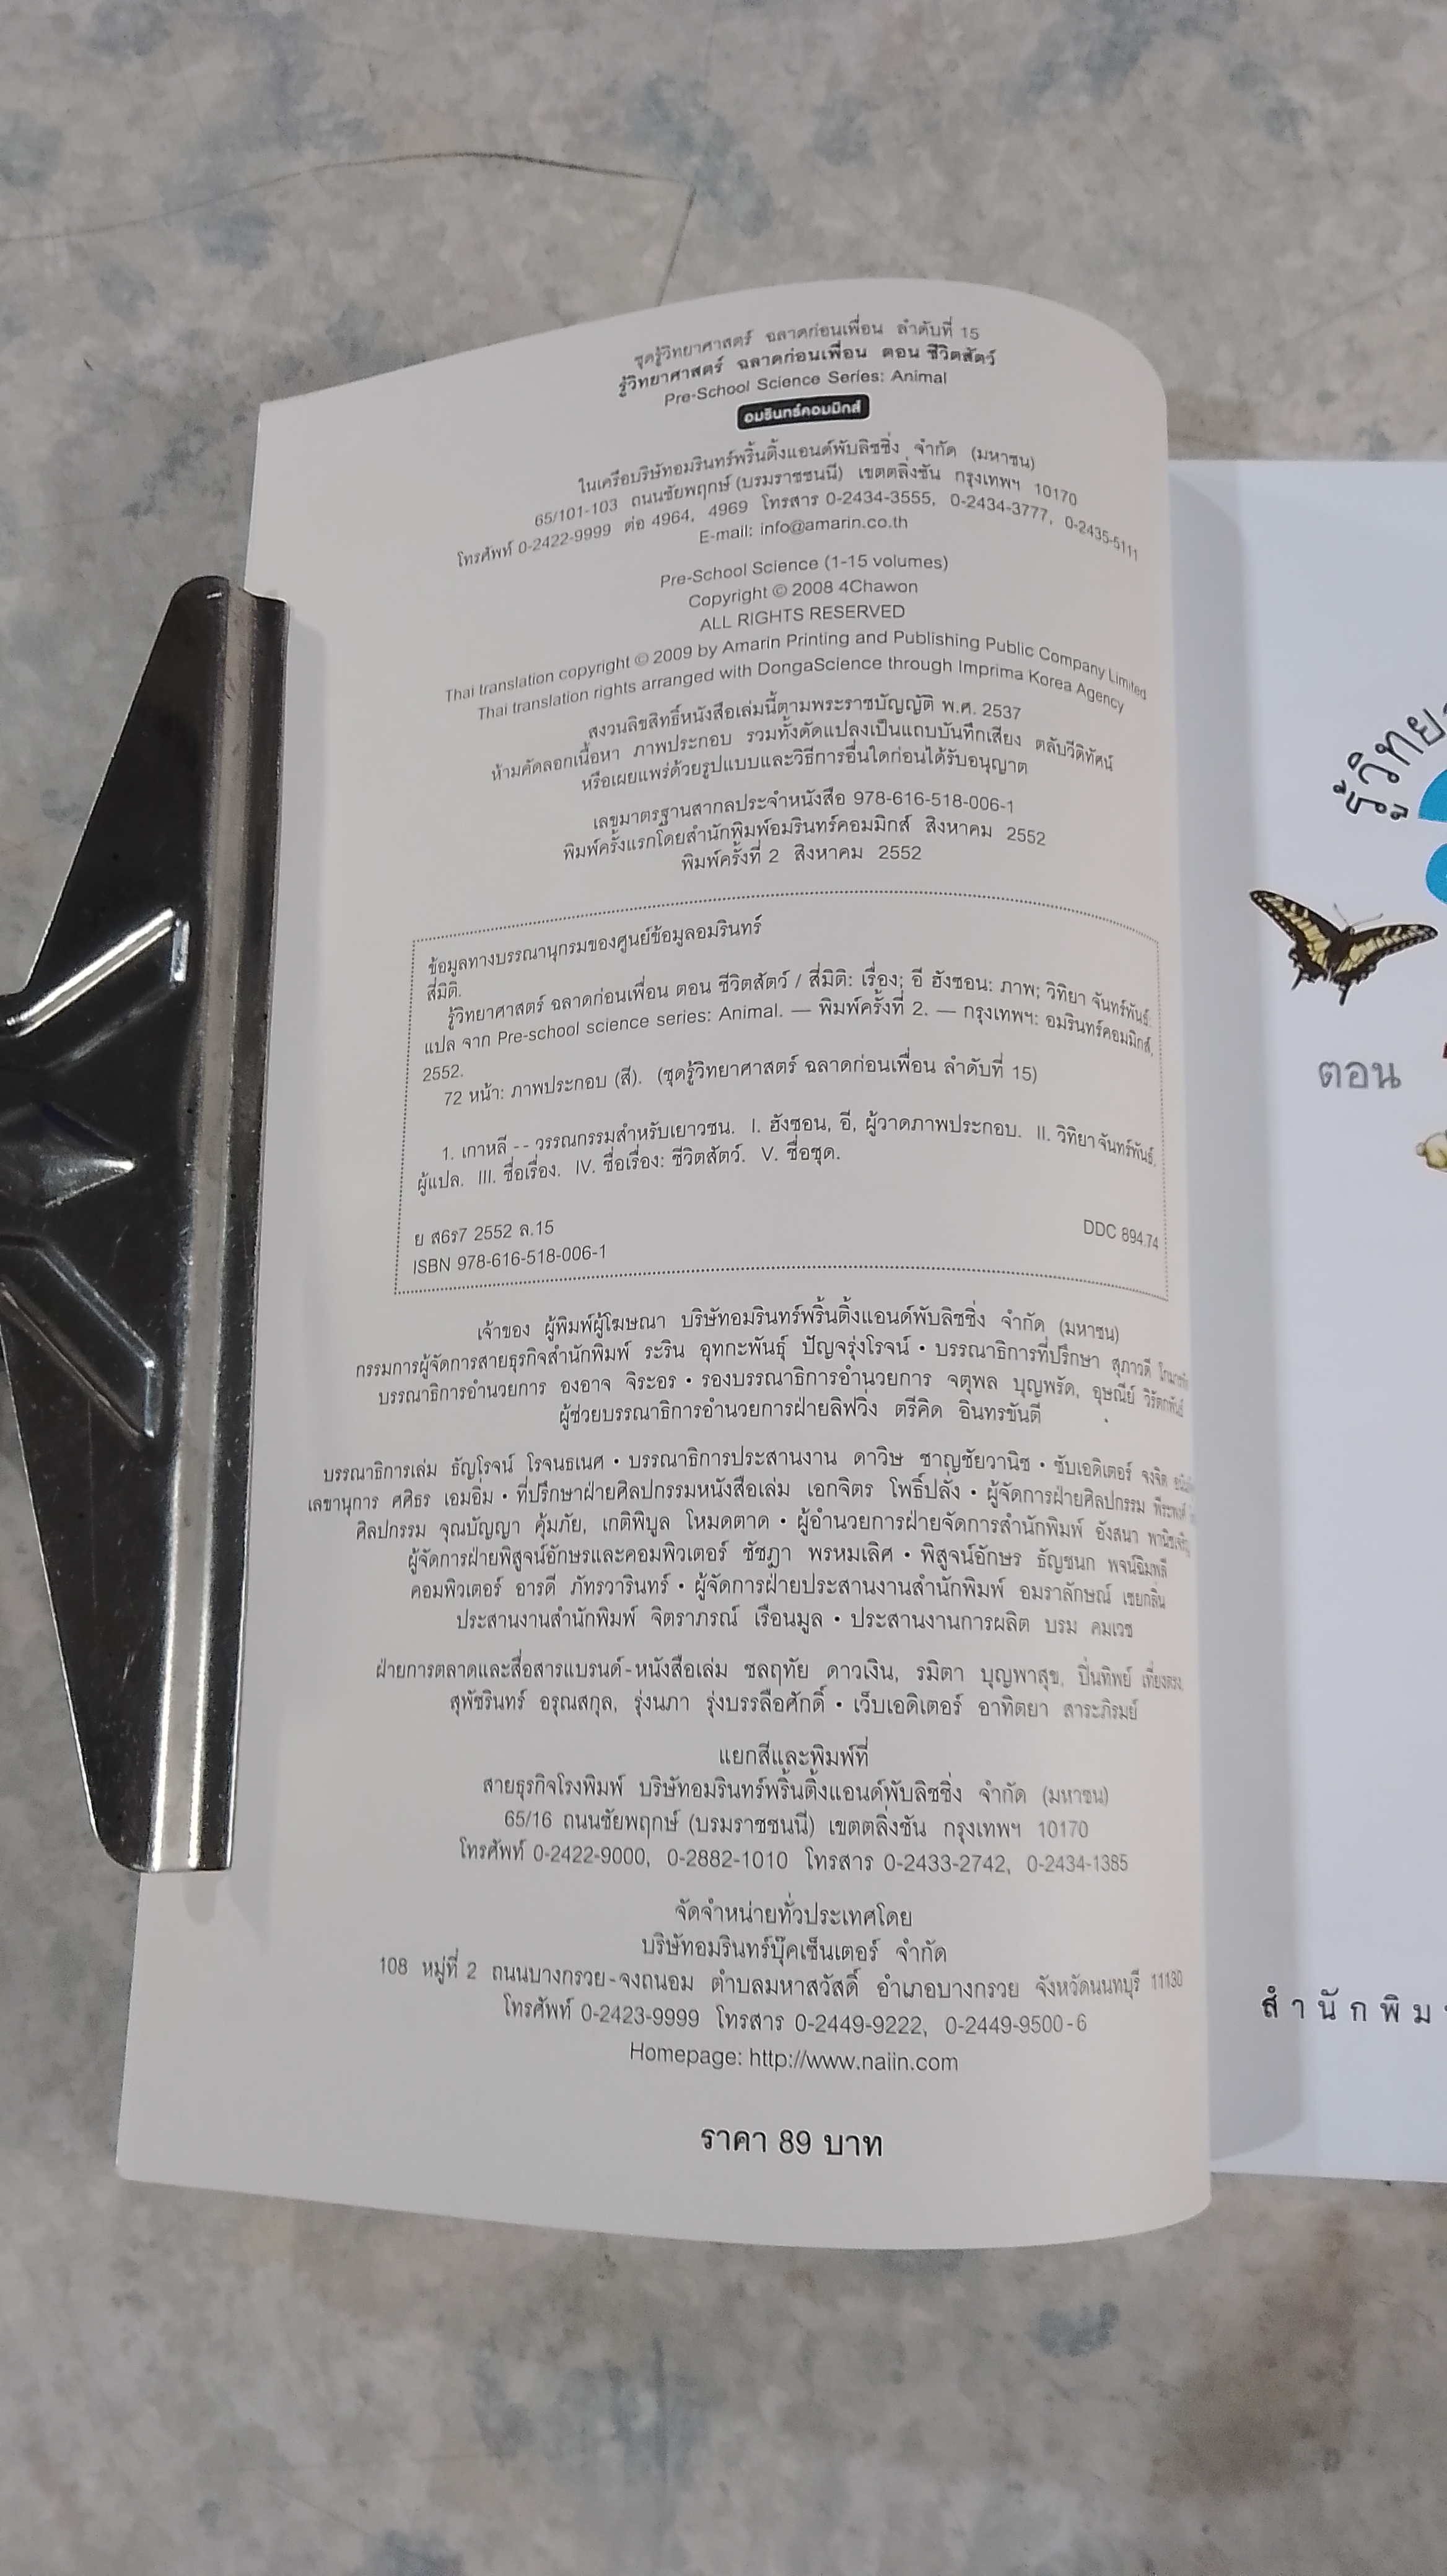 ชุดรู้วิทยาศาสตร์ ฉลาดก่อนเพื่อน ลำดับที่ 15
รู้วิทยาศาสตร์ ฉลาดก่อนเพื่อน ตอน ชีวิตสัตว์
Pre-School Science Series: Animal
อมรินทร์คอมมิกส์
ในเครือบริษัทอมรินทร์พริ้นติ้งแอนด์พับลิชชิ่ง จำกัด (มหาชน)
65/101-103 ถนนชัยพฤกษ์ (บรมราชชนนี) เขตตลิ่งชัน กรุงเทพฯ 10170
โทรศัพท์ 0-2422-9999 ต่อ 4964, 4969 โทรสาร 0-2434-3555, 0-2434-3777, 0-2435-5111
E-mail: info@amarin.co.th
Pre-School Science (1-15 volumes)
Copyright © 2008 4Chawon
ALL RIGHTS RESERVED
Thai translation copyright © 2009 by Amarin Printing and Publishing Public Company Limited
Thai translation rights arranged with DongaScience through Imprima Korea Agency
สงวนลิขสิทธิ์หนังสือเล่มนี้ตามพระราชบัญญัติ พ.ศ. 2537
ห้ามคัดลอกเนื้อหา ภาพประกอบ รวมทั้งดัดแปลงเป็นแถบบันทึกเสียง ตลับวีดิทัศน์
หรือเผยแพร่ด้วยรูปแบบและวิธีการอื่นใดก่อนได้รับอนุญาต
เลขมาตรฐานสากลประจำหนังสือ 978-616-518-006-1
พิมพ์ครั้งแรกโดยสำนักพิมพ์อมรินทร์คอมมิกส์ สิงหาคม 2552
พิมพ์ครั้งที่ 2 สิงหาคม 2552
ข้อมูลทางบรรณานุกรมของศูนย์ข้อมูลอมรินทร์
สี่มิติ.
รู้วิทยาศาสตร์ ฉลาดก่อนเพื่อน ตอน ชีวิตสัตว์ / สี่มิติ: เรื่อง; อี ฮังซอน: ภาพ; วิทิยา จันทร์พันธ์:
แปล จาก Pre-school science series: Animal. — พิมพ์ครั้งที่ 2. — กรุงเทพฯ: อมรินทร์คอมมิกส์,
2552.
72 หน้า: ภาพประกอบ (สี). (ชุดรู้วิทยาศาสตร์ ฉลาดก่อนเพื่อน ลำดับที่ 15)
1. เกาหลี -- วรรณกรรมสำหรับเยาวชน. I. ฮังซอน, อี, ผู้วาดภาพประกอบ. II. วิทิยา จันทร์พันธ์,
ผู้แปล. III. ชื่อเรื่อง. IV. ชื่อเรื่อง: ชีวิตสัตว์. V. ชื่อชุด.
ย ส6ร7 2552 ล.15
DDC 894.74
ISBN 978-616-518-006-1
เจ้าของ ผู้พิมพ์ผู้โฆษณา บริษัทอมรินทร์พริ้นติ้งแอนด์พับลิชชิ่ง จำกัด (มหาชน)
กรรมการผู้จัดการสายธุรกิจสำนักพิมพ์ ระริน อุทกะพันธุ์ ปัญจรุ่งโรจน์ • บรรณาธิการที่ปรึกษา สุภาวดี
บรรณาธิการอำนวยการ องอาจ จิระอร • รองบรรณาธิการอำนวยการ จตุพล บุญพรัด, อุษณีย์ วิรัตกพันธ์
ผู้ช่วยบรรณาธิการอำนวยการฝ่ายลิฟวิ่ง ตรีคิด อินทรขันตี
บรรณาธิการเล่ม ธัญโรจน์ โรจนธเนศ • บรรณาธิการประสานงาน ดาวิษ ชาญชัยวานิช • ซับเอดิเตอร์ จงจิต
เลขานุการ ศศิธร เอมอิ่ม • ที่ปรึกษาฝ่ายศิลปกรรมหนังสือเล่ม เอกจิตร โพธิ์ปลั่ง • ผู้จัดการฝ่ายศิลปกรรม
ศิลปกรรม จุณบัญญา คุ้มภัย, เกติพิบูล โหมดตาด • ผู้อำนวยการฝ่ายจัดการสำนักพิมพ์ อังสนา
ผู้จัดการฝ่ายพิสูจน์อักษรและคอมพิวเตอร์ ชัชฎา พรหมเลิศ • พิสูจน์อักษร ธัญชนก พจน์ฉิมพลี
คอมพิวเตอร์ อารดี ภัทรวารินทร์ • ผู้จัดการฝ่ายประสานงานสำนักพิมพ์ อมราลักษณ์ เชยกลิ่น
ประสานงานสำนักพิมพ์ จิตราภรณ์ เรือนมูล • ประสานงานการผลิต บรม คมเวช
ฝ่ายการตลาดและสื่อสารแบรนด์-หนังสือเล่ม ชลฤทัย ดาวเงิน, รมิตา บุญพาสุข, ปิ่นทิพย์ เที่ยงตรง,
สุพัชรินทร์ อรุณสกุล, รุ่งนภา รุ่งบรรลือศักดิ์ • เว็บเอดิเตอร์ อาทิตยา สาระภิรมย์
แยกสีและพิมพ์ที่
สายธุรกิจโรงพิมพ์ บริษัทอมรินทร์พริ้นติ้งแอนด์พับลิชชิ่ง จำกัด (มหาชน)
65/16 ถนนชัยพฤกษ์ (บรมราชชนนี) เขตตลิ่งชัน กรุงเทพฯ 10170
โทรศัพท์ 0-2422-9000, 0-2882-1010 โทรสาร 0-2433-2742, 0-2434-1385
จัดจำหน่ายทั่วประเทศโดย
บริษัทอมรินทร์บุ๊คเซ็นเตอร์ จำกัด
108 หมู่ที่ 2 ถนนบางกรวย-จงถนอม ตำบลมหาสวัสดิ์ อำเภอบางกรวย จังหวัดนนทบุรี 11130
โทรศัพท์ 0-2423-9999 โทรสาร 0-2449-9222, 0-2449-9500-6
Homepage: http://www.naiin.com
ราคา 89 บาท
รู้วิทยา
ตอน
สำนักพิม